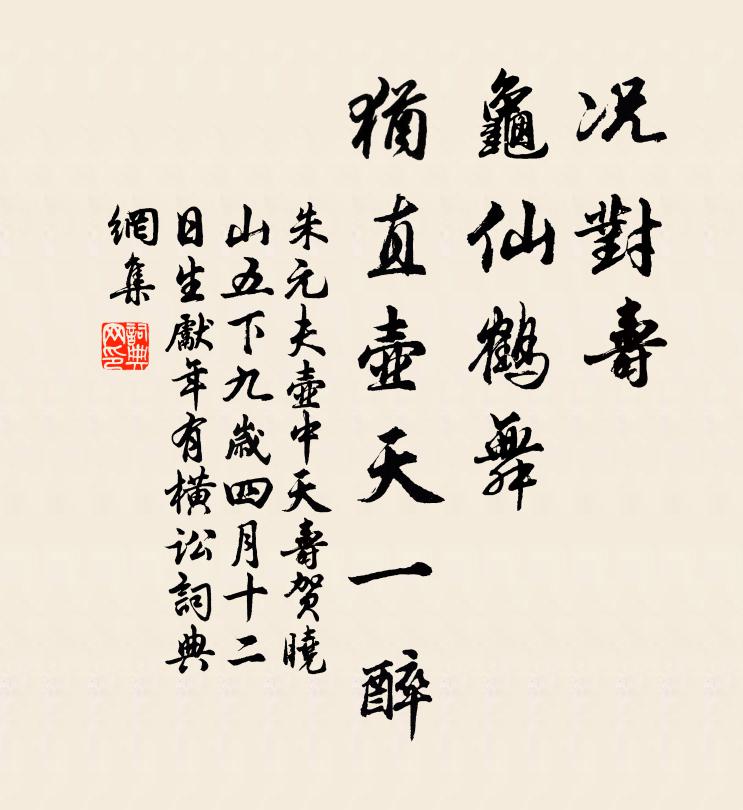 况對壽
龜仙鶴舞
猶直壺天一醉
朱元夫壺中天壽賀曉
山五下九歲四月十二
日生獻年有橫訟詞典
網集
詞典
网印